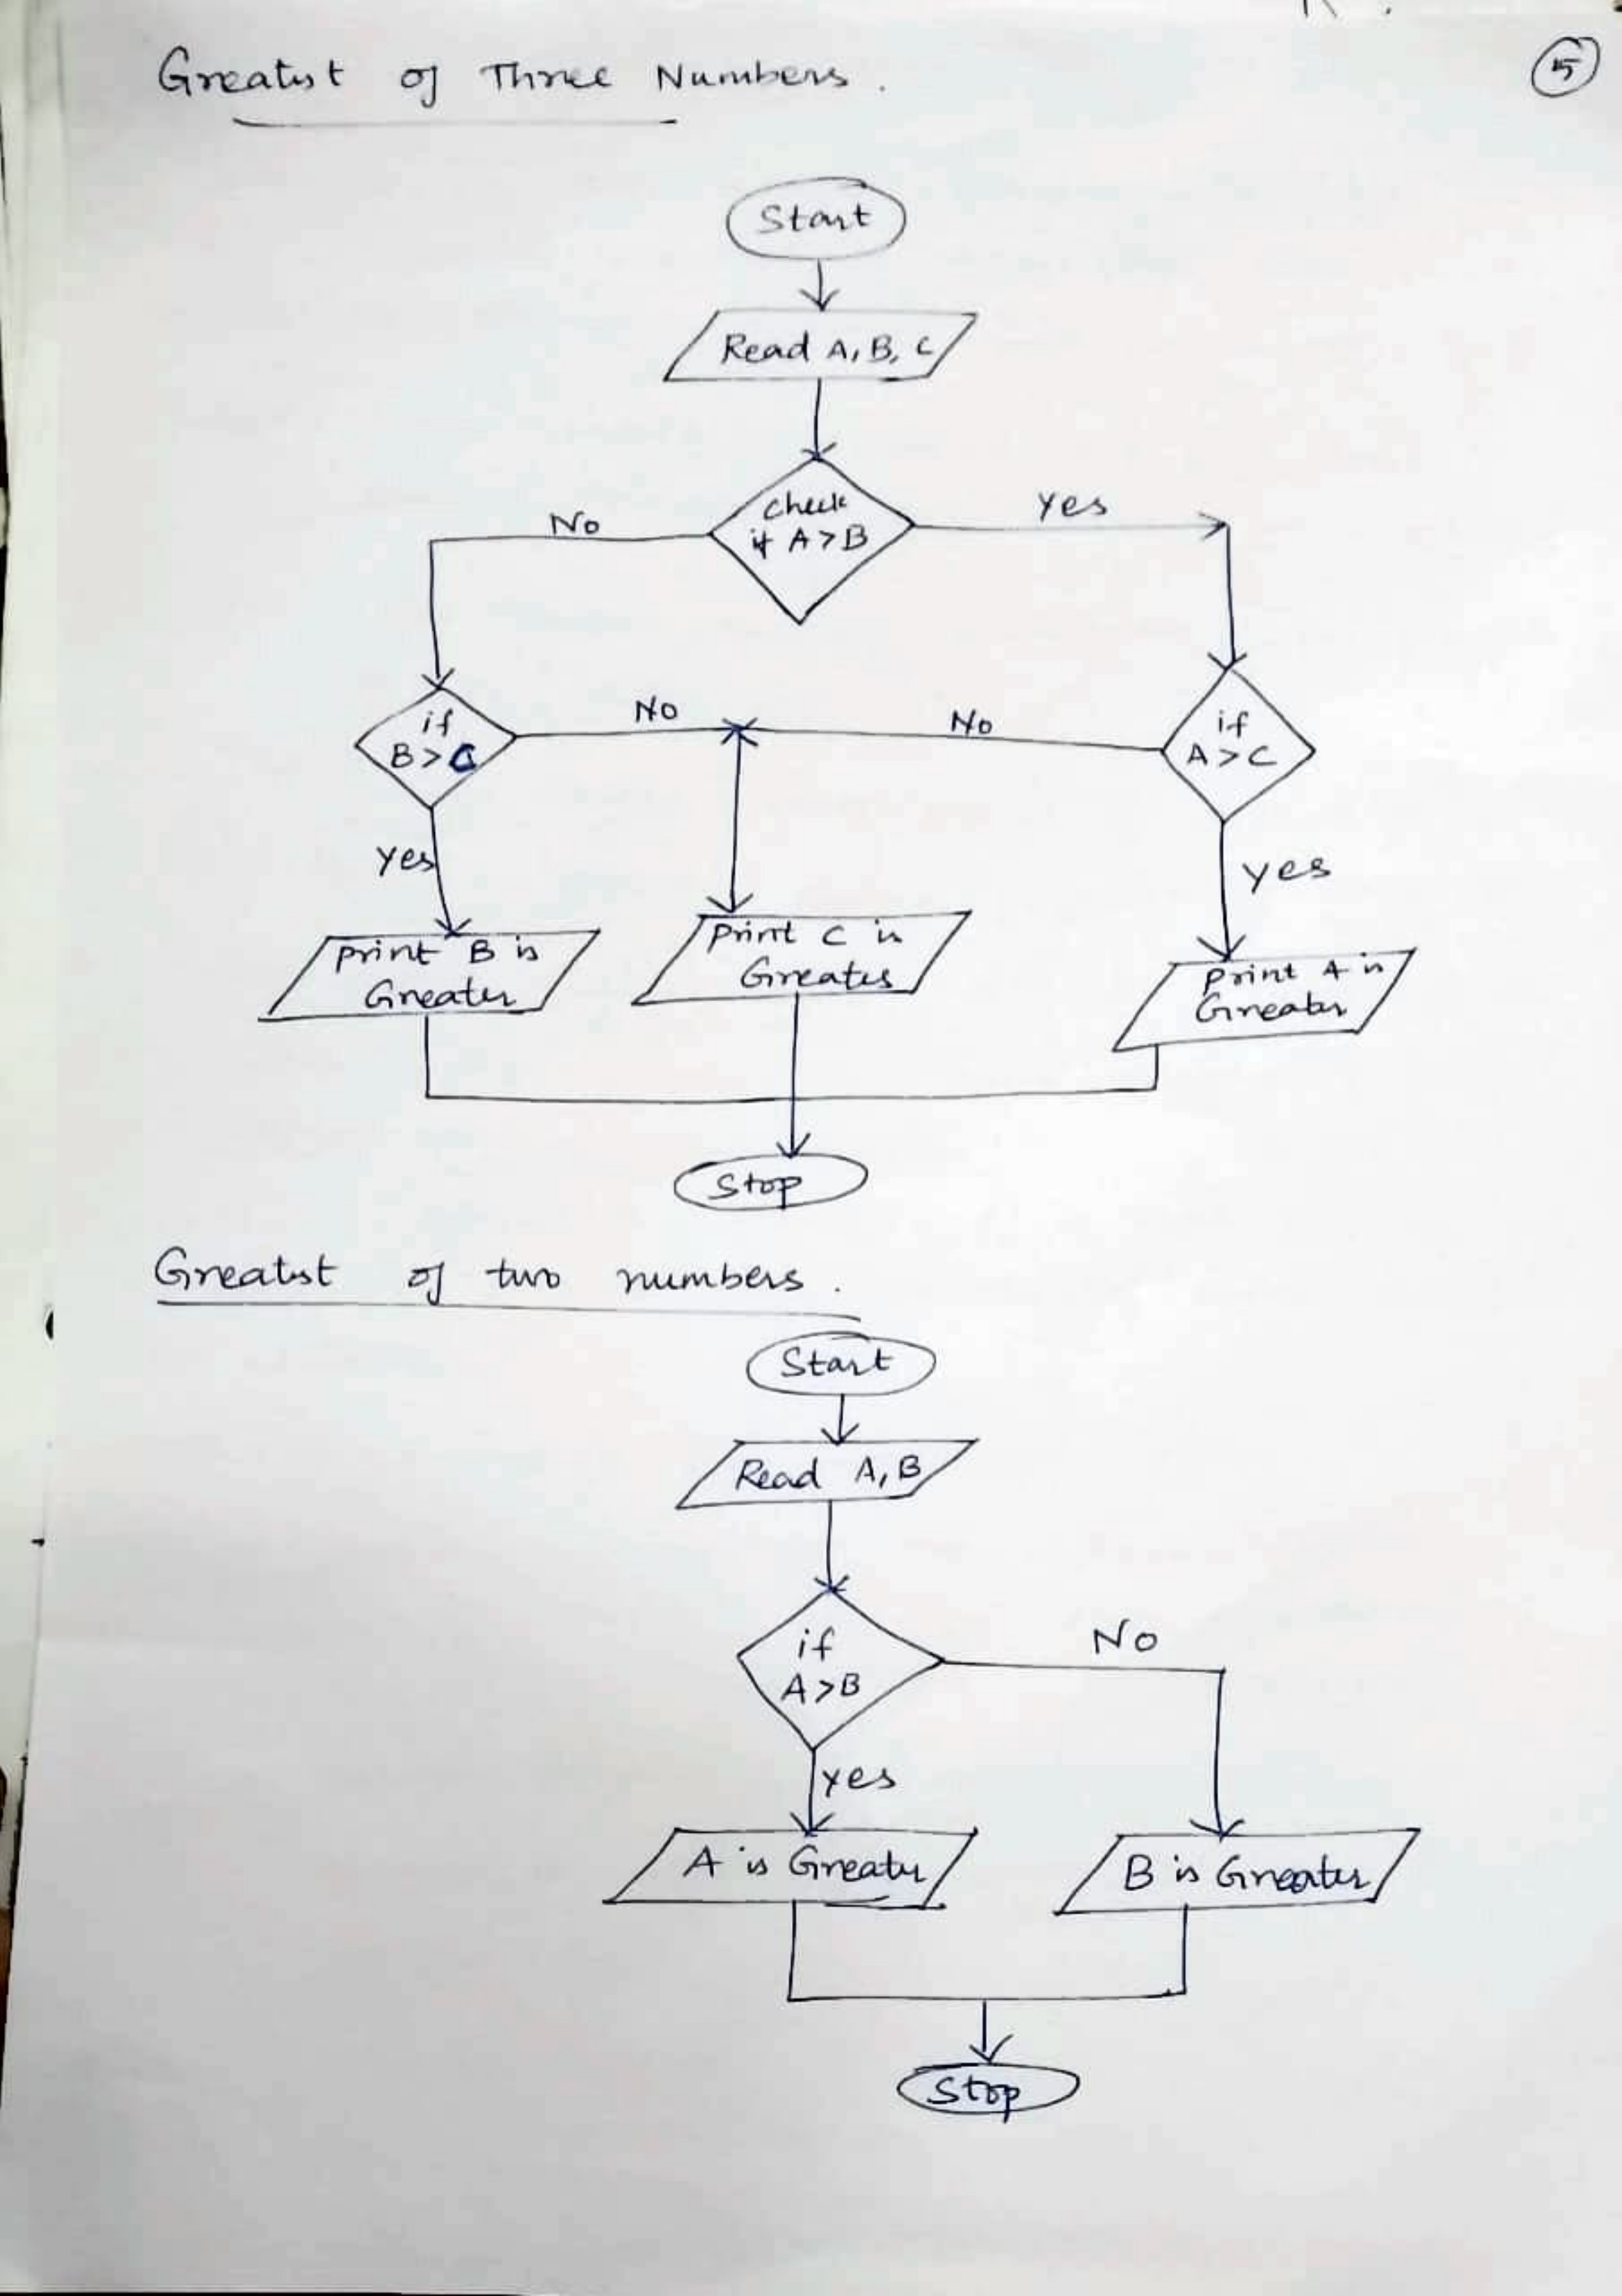 Greatest of Three Numbers.
5
Start
Read A, B, C
Check
if A > B
No
Yes
if
B > C
No
No
if
A > C
Yes
Yes
Print B is
Greater
Print C is
Greater
Print A is
Greater
Stop
Greatest of two numbers.
Start
Read A, B
if
A > B
No
Yes
A is Greater
B is Greater
Stop